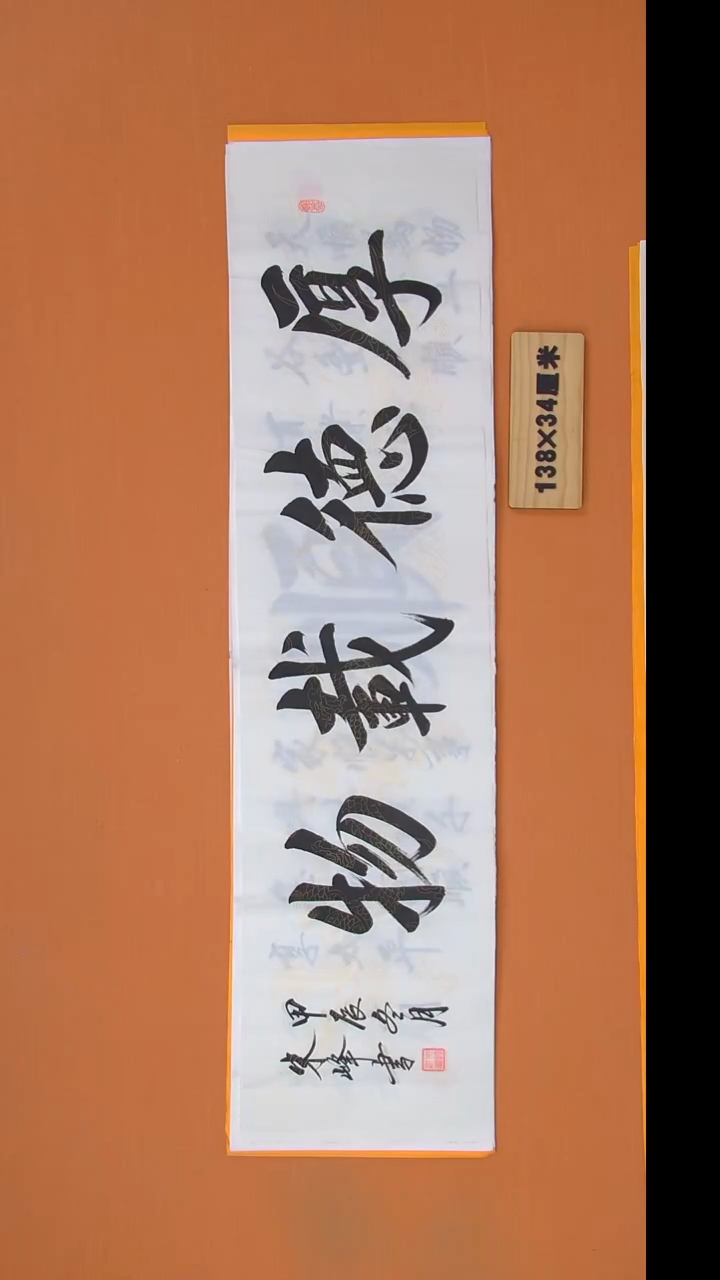 厚德載物
甲辰冬月
峰書
138×34厘米